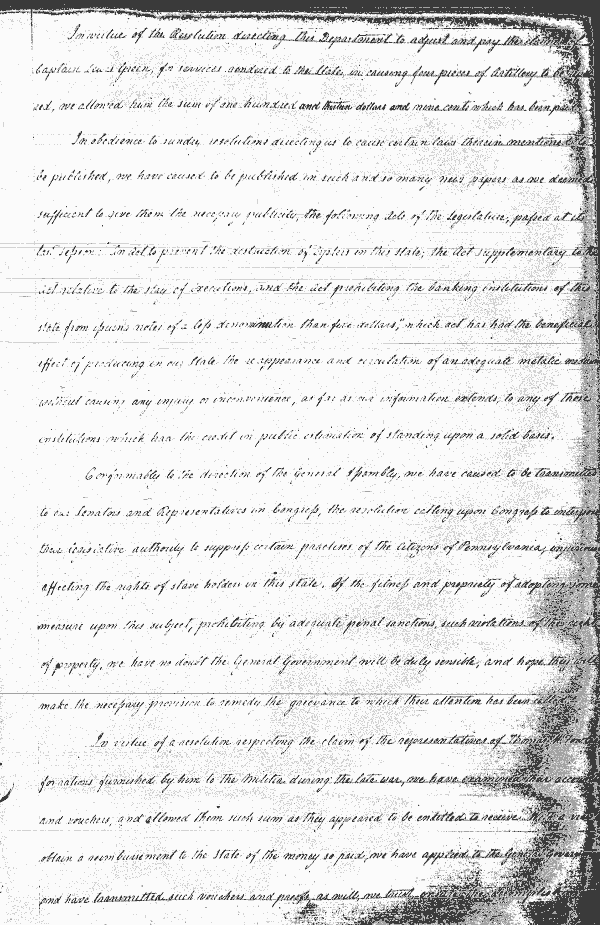 In virtue of the Resolution directing this Department to adjust and pay the claim of
Captain Lewis Green, for services rendered to the State, in causing four pieces of Artillery to be
ed, we allowed him the sum of one hundred and thirteen dollars and nine cents which has been paid
In obedience to sundry resolutions directing us to cause certain laws therein mentioned to
be published, we have caused to be published in such and so many news papers as we deemed
sufficient to give them the necessary publicity, the following Acts of the Legislature, passed at its
last session: An act to prevent the destruction of Oysters in this State; the Act supplementary to the
act relative to the stay of Executions, and the Act prohibiting the banking institutions of this
State from issuing notes of a less denomination than five dollars," which act has had the beneficial
effect of producing in our State the reappearance and circulation of an adequate metalic medium
without causing any injury or inconvenience, as far as our information extends, to any of those
institutions which had the credit in public estimation of standing upon a solid basis.
Conformably to the direction of the General Assembly, we have caused to be transmitted
to our Senators and Representatives in Congress, the resolution calling upon Congress to interpose
their legislative authority to suppress certain practises of the Citizens of Pennsylvania, injuriously
affecting the rights of slave holders in this state. Of the fitness and propriety of adopting some
measure upon this subject, prohibiting by adequate penal sanctions, such violations of the right
of property, we have no doubt the General Government will be duly sensible, and hope they will
make the necessary provision to remedy the grievance to which their attention has been called.
In virtue of a resolution respecting the claim of the representatives of Thomas
for rations furnished by him to the Militia during the late war, we have examined their accounts
and vouchers, and allowed them such sum as they appeared to be entitled to receive.
obtain a reimbursement to the State of the money so paid, we have applied to the General Government
and have transmitted such vouchers and proofs, as will, we trust,